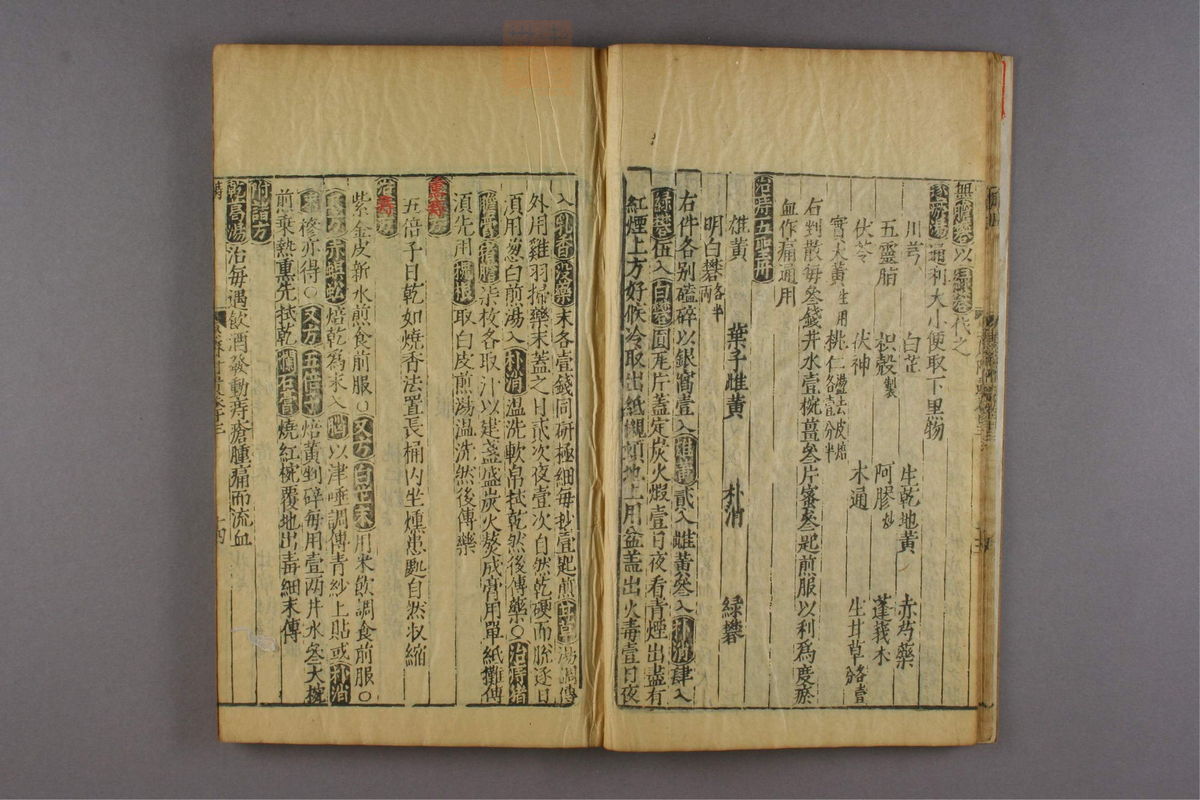 無膽礬以綠礬代之
逐瘀湯通利大小便取下里物
川芎 白芷 生乾地黃 赤芍藥
五靈脂 枳殼製 阿膠炒 蓬莪朮
茯苓 茯神 木通 生甘草各壹分
實大黃生用 桃仁盪去皮焙各壹分半
右剉散每叄錢井水壹椀薑叄片蜜叄匙煎服以利為度瘀
血作痛通用
治痔五正丹
雄黃 葉子雌黃 朴消 綠礬
明白礬各半兩
右件各別磕碎以銀窩壹入雄黃貳入雌黃叄入朴消肆入
綠礬伍入白礬圓瓦片蓋定炭火煅壹日夜看青煙出盡有
紅煙上方好候冷取出紙襯頓地上用盆蓋出火毒壹日夜
入乳香沒藥末各壹錢同研極細每抄壹匙煎甘草湯調傅
外用雞羽掃藥末蓋之日貳次夜壹次自然乾硬而脫逐日
須用葱白煎湯入朴消溫洗軟帛拭乾然後傅藥○治痔猪
膽膏猪膽柒枚各取汁以建盞盛炭火熬成膏用單紙攤傅
須先用槐根取白皮煎湯溫洗然後傅藥
熏痔方
五倍子日乾如燒香法置長桶內坐燻患處自然收縮
治痔方
紫金皮新水煎食前服○又方白芷末用米飲調食前服○
又方赤蜈蚣焙乾為末入腦以津唾調傅青紗上貼或朴消
末摻亦得○又方五倍子焙黃剉碎每用壹兩井水叄大椀
煎乘熱熏先拭乾爛石膏燒紅椀覆地出毒細末傅
附諸方
乾葛湯治每遇飲酒發動痔瘡腫痛而流血